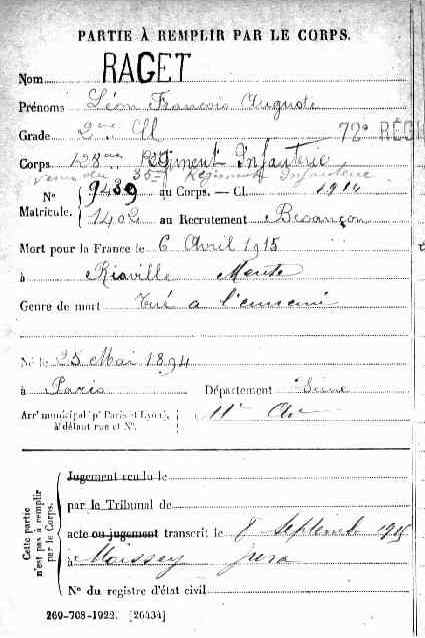 PARTIE À REMPLIR PAR LE CORPS.
Nom RAGET
Prénoms Léon François Auguste
Grade 2me Cl 72e RÉG
Corps 128me Régiment Infanterie
venu du 35e Régiment Infanterie
N° 9439 au Corps. — Cl. 1914
Matricule. 1402 au Recrutement Besançon
Mort pour la France le 6 Avril 1915
à Riaville Meuse
Genre de mort Tué à l'ennemi
Né le 25 Mai 1894
à Paris Département Seine
Arrt municipal (pr Paris et Lyon), à défaut rue et N°. 11e
Cette partie n'est pas à remplir par le Corps.
Jugement rendu le
par le Tribunal de
acte ou jugement transcrit le 8 Septembre 1915
à Moissey Jura
N° du registre d'état civil
269-708-1922. [26434]